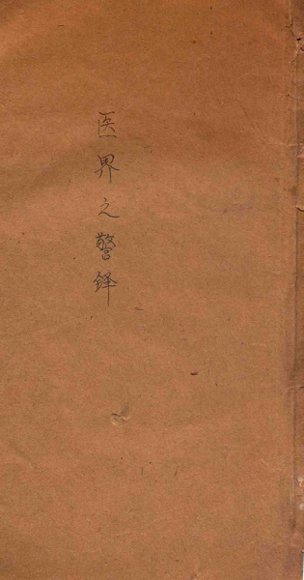 医界之警鐸